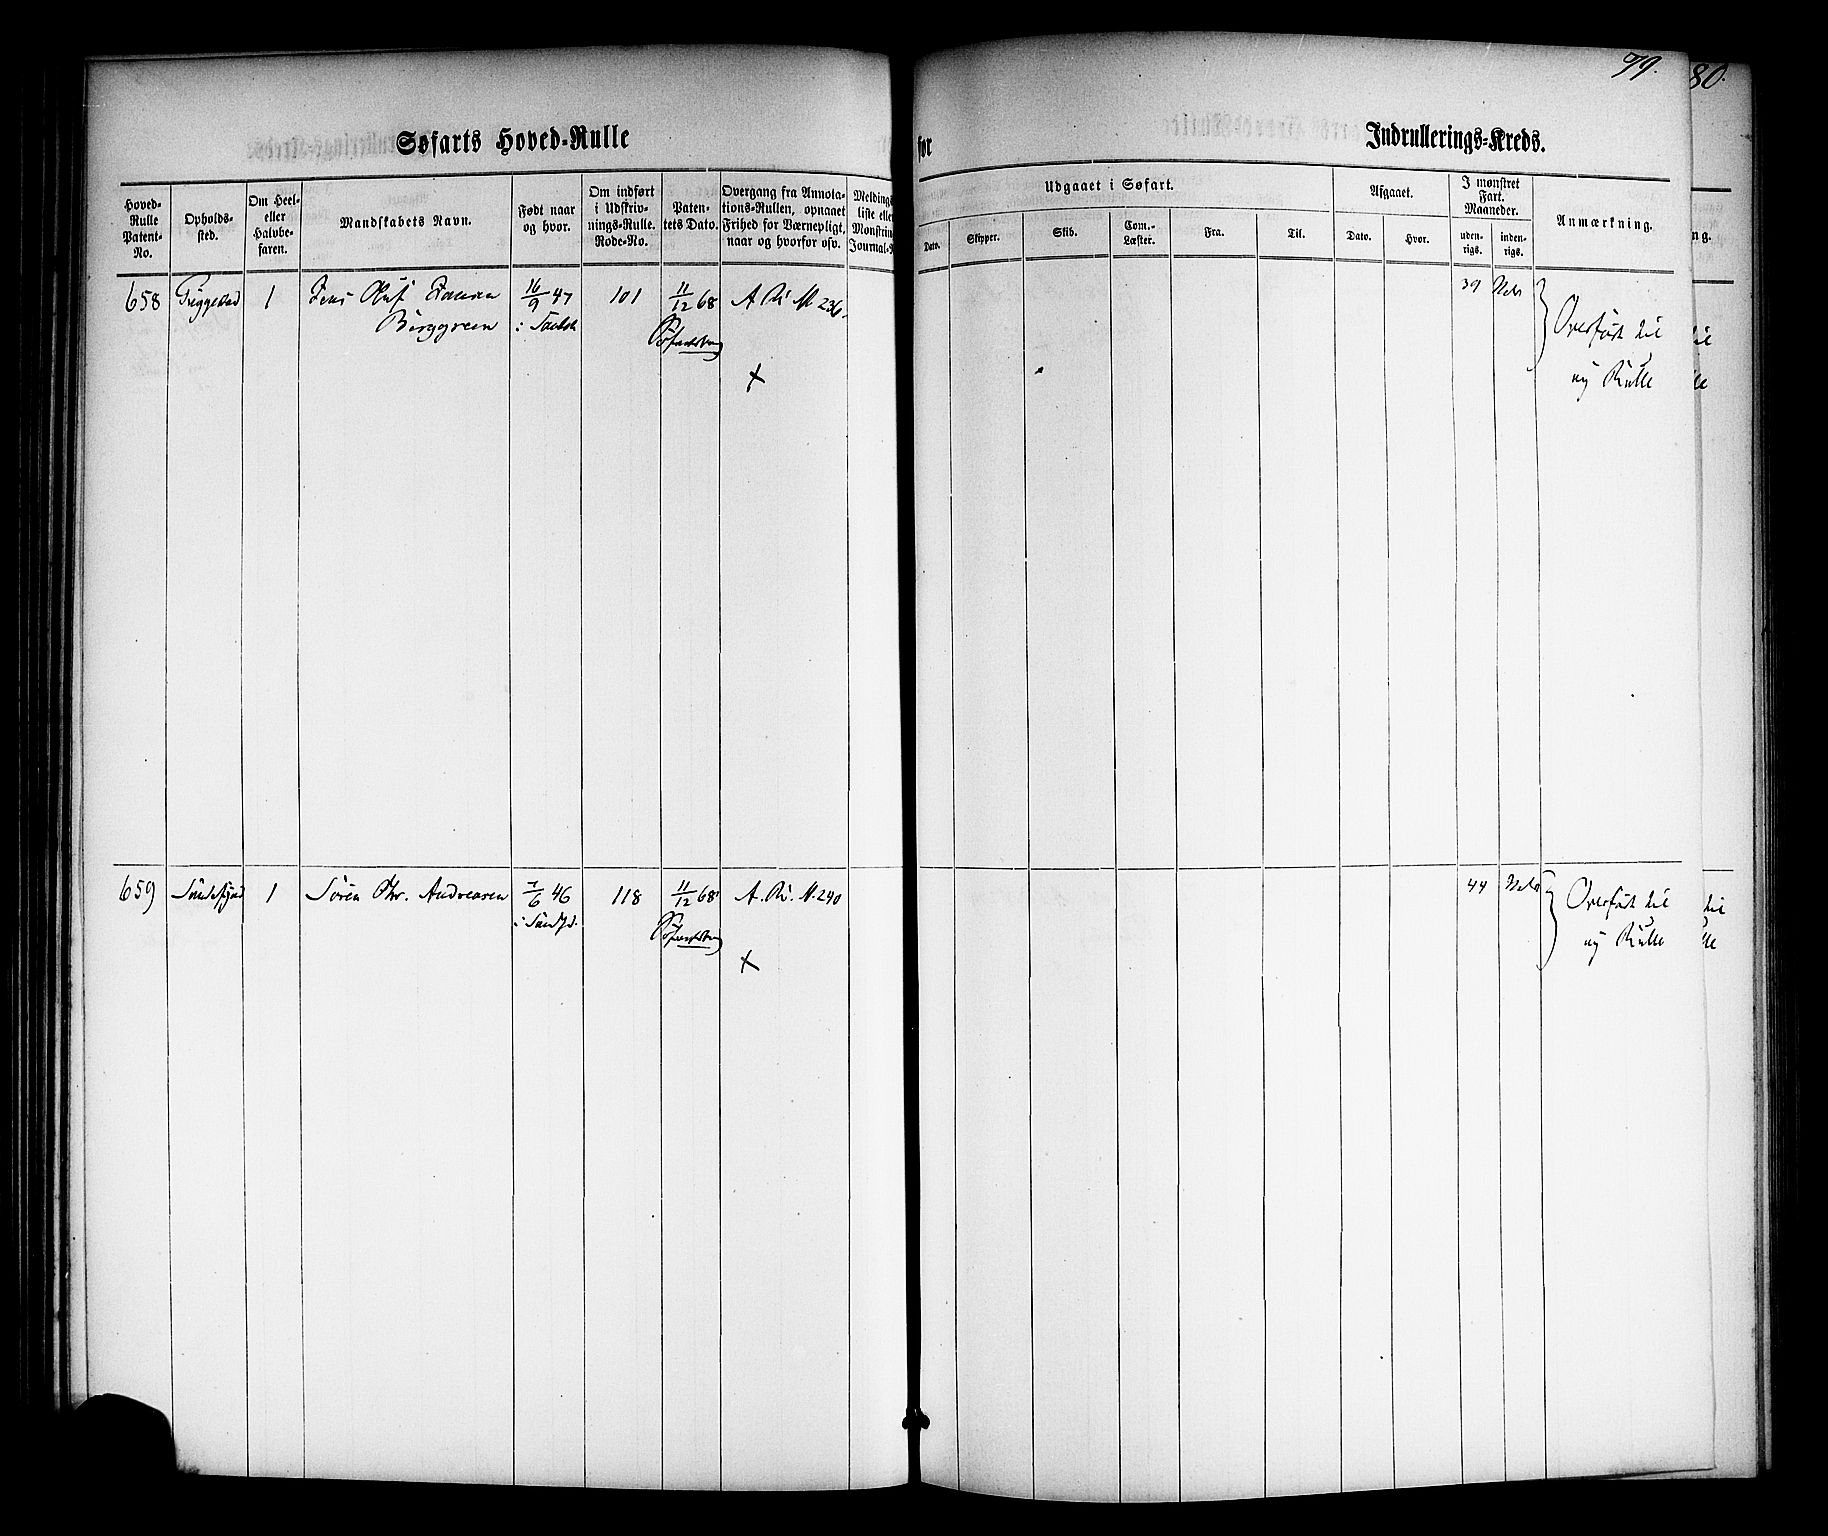 79.
80.
Søfarts Hoved-Rulle
for
Indrullerings-Kreds.
Hoved-
Rulle
Patent-
No.
Opholds-
sted.
Om Heel-
eller
Halvbe-
faren.
Mandskabets Navn.
Født naar
og hvor.
Om indført
i Udskriv-
nings-Rulle.
Rode-No.
Paten-
tets Dato.
Overgang fra Annola-
tions-Rullen, opnaaet
Frihed for Værnepligt,
naar og hvorfor osv.
Meldings
liste eller
Mønstrin
Journal-N
Udgaaet i Søfart.
Dato.
Skipper.
Skib.
Com.-
Læster.
Fra.
Til.
Afgaaet.
Dato.
Hvor.
I mønstret
Fart.
Maaneder.
uden-
rigs.
inden-
rigs.
Anmærkning.
ng.
658
1
Jens Oluf
Berggreen
16/9 47
101
11/12 68
A. Ru. N. 236
39
Overført til
ny Rulle
659
Sandefjord
1
Sören Chr. Andreasen
7/6 46
i Sandfd.
118
11/12 68
A. Ru. N. 240
44
Overført til
ny Rulle